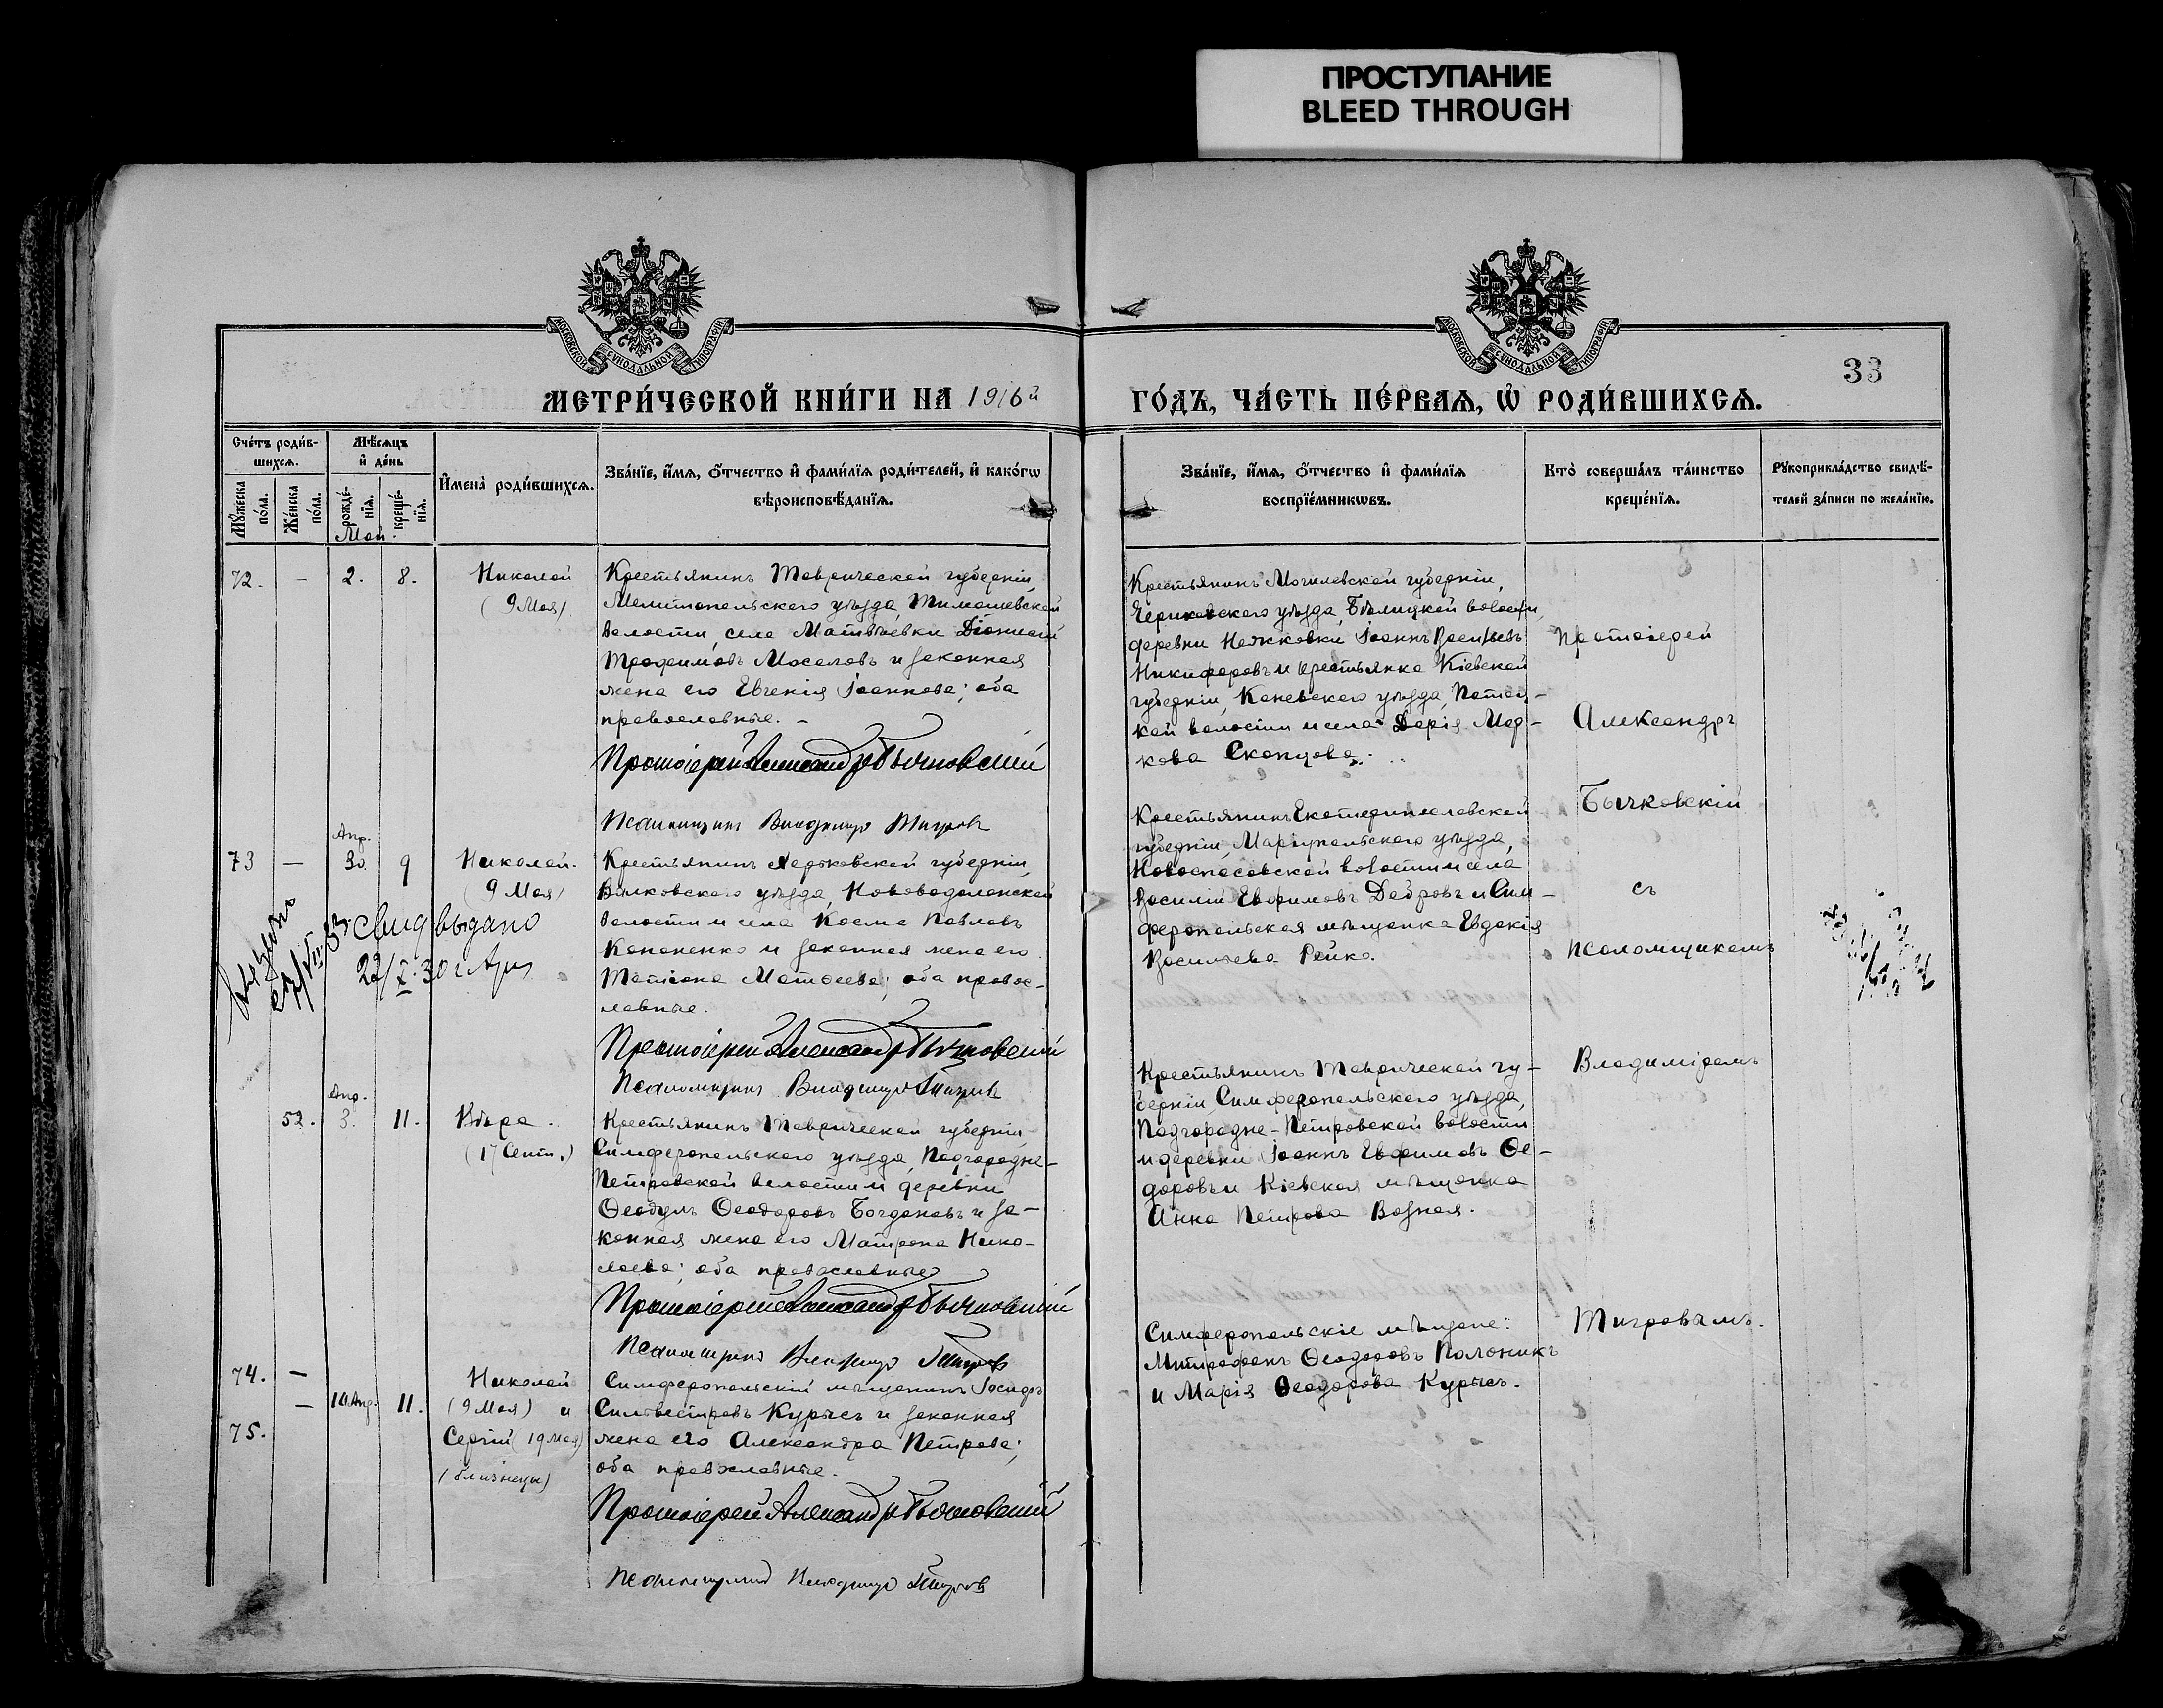 ПРОСТУПАНИЕ
BLEED THROUGH
МОСКОВСКОЙ СѴНОДАЛЬНОЙ ТИПОГРАФІИ
МОСКОВСКОЙ СѴНОДАЛЬНОЙ ТИПОГРАФІИ
33
МЕТРИ́ЧЕСКОЙ КНИ́ГИ НА 1916й
ГО́ДЪ, ЧА́СТЬ ПЕ́РВАѦ, Ѡ РОДИ́ВШИХСѦ.
Сче́тъ роди́в-
шихсѧ.
Мѣ́сѧцъ
и҆ де́нь
Му́жеска по́ла.
Же́нска по́ла.
рожде́нїѧ.
креще́нїѧ.
Май.
И҆мена̀ роди́вшихсѧ.
Зва́нїе, и҆́мѧ, ѻ҆́тчество и҆ фами́лїѧ роди́телей, и҆ како́гѡ
вѣроисповѣ́данїѧ.
Зва́нїе, и҆́мѧ, ѻ҆́тчество и҆ фами́лїѧ
воспрїе́мникѡвъ.
Кто̀ соверша́лъ та́инство
креще́нїѧ.
Рꙋкоприкла́дство свидѣ́-
телей за́писи по жела́нїю.
72. – 2. 8.
Николай
(9 Мая)
Крестьянинъ Таврической губерніи,
Мелитопольскаго уѣзда Тимашевской
волости, села Матвѣевки Діонисій
Трофимовъ Мосаловъ и законная
жена его Евгенія Іоаннова; оба
православные. –
Протоіерей Александръ Бычковскій
Псаломщикъ Владиміръ Тигровъ
Крестьянинъ Могилевской губерніи,
Чериковскаго уѣзда, Бѣлицкой волости,
деревни Нежковки Іоаннъ Васильевъ
Никифоровъ и крестьянка Кіевской
губерніи, Каневскаго уѣзда, Потап-
кой волости и села Дарія Мар-
кова Скопцова.
Протоіерей
Александръ
Бычковскій
съ
псаломщикомъ
Владиміромъ
Тигровымъ.
73 – Апр. 30. 9
Николай.
(9 Мая)
Крестьянинъ Харьковской губерніи,
Валковскаго уѣзда, Нововодолажской
волости и села Косма Павловъ
Кононенко и законная жена его
Татіана Матѳеева; оба правос-
лавные.
Протоіерей Александръ Бычковскій
Псаломщикъ Владиміръ Тигровъ
Свид выдано
22/X 30 г
27/VII-63
Крестьянинъ Екатеринославской
губерніи, Маріупольскаго уѣзда,
Новоспасовской волости и села
Василій Евфимовъ Добровъ и Сим-
феропольская мѣщанка Евдокія
Васильева Рейко.
52. Апр. 3. 11.
Вѣра.
(17 Сент.)
Крестьянинъ Таврической губерніи
Симферопольскаго уѣзда, Подгородне-
Петровской волости и деревни
Ѳеодулъ Ѳеодоровъ Богдановъ и за-
конная жена его Матрона Нико-
лаева; оба православные
Протоіерей Александръ Бычковскій
Псаломщикъ Владиміръ Тигровъ
Крестьянинъ Таврической гу-
берніи, Симферопольскаго уѣзда,
Подгородне-Петровской волости
и деревни Іоаннъ Евфимовъ Ѳе-
доровъ и Кіевская мѣщанка
Анна Петрова Возная.
74. –
75. – 10 Апр. 11.
Николай
(9 Мая) и
Сергій (19 мая)
(близнецы)
Симферопольскій мѣщанинъ Іосифъ
Сильвестровъ Курысъ и законная
жена его Александра Петрова;
оба православные.
Протоіерей Александръ Бычковскій
Псаломщикъ Владиміръ Тигровъ
Симферопольскіе мѣщане:
Митрофанъ Ѳеодоровъ Полоникъ
и Марія Ѳеодорова Курысъ.